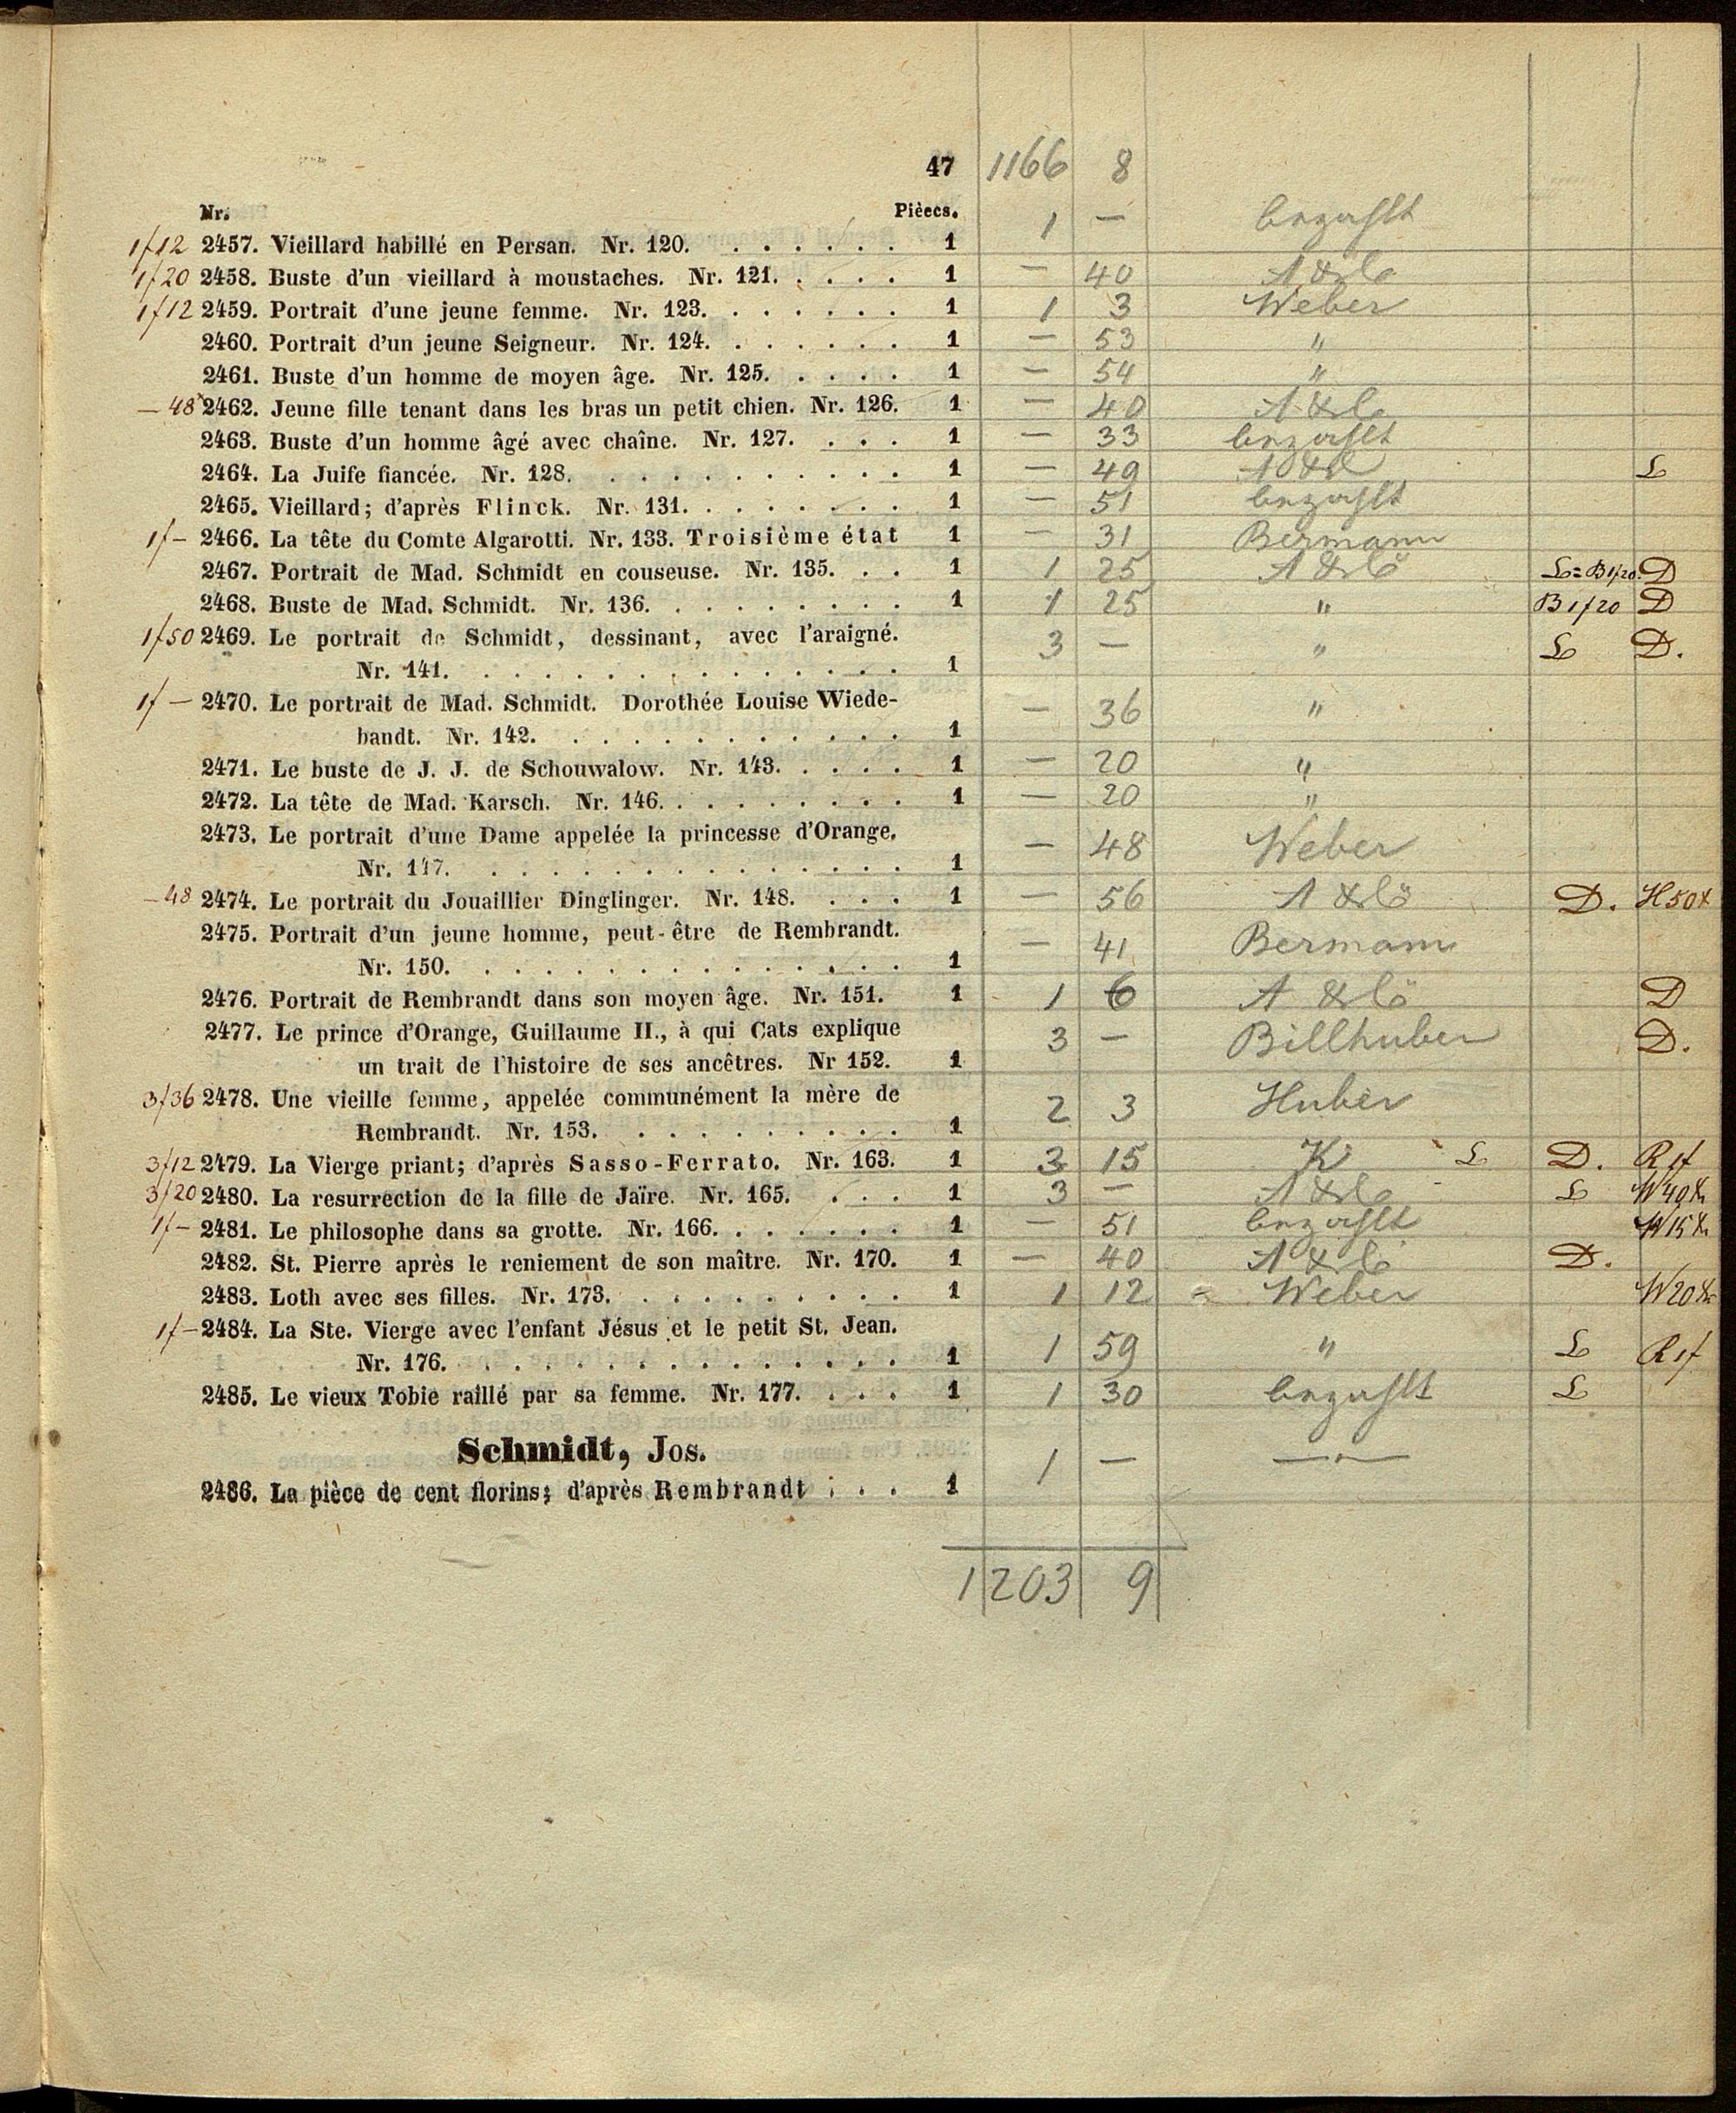 47 1166 8
Nr. Pièecs.
1f12 2457. Vieillard habillé en Persan. Nr. 120. . . . . . . 1 1 — bezahlt
1f20 2458. Buste d'un vieillard à moustaches. Nr. 121. . . . . 1 — 40
1f12 2459. Portrait d'une jeune femme. Nr. 123. . . . . . . 1 1 3 Weber
2460. Portrait d'un jeune Seigneur. Nr. 124. . . . . . . 1 — 53 "
2461. Buste d'un homme de moyen âge. Nr. 125. . . . . 1 — 54 "
— 48x 2462. Jeune fille tenant dans les bras un petit chien. Nr. 126. 1 — 40
2463. Buste d'un homme âgé avec chaîne. Nr. 127. . . . 1 — 33 bezahlt
2464. La Juife fiancée. Nr. 128. . . . . . . . . . 1 — 49 L
2465. Vieillard; d'après Flinck. Nr. 131. . . . . . . . 1 — 51 bezahlt
1f— 2466. La tête du Comte Algarotti. Nr. 133. Troisième état 1 — 31 Bermann
2467. Portrait de Mad. Schmidt en couseuse. Nr. 135. . . 1 1 25 A & Co L = B 1f20. D
2468. Buste de Mad. Schmidt. Nr. 136. . . . . . . . . 1 1 25 " B 1f20 D
1f50 2469. Le portrait de Schmidt, dessinant, avec l'araigné. 3 — " L D.
Nr. 141. . . . . . . . . . . . . . . 1
1f— 2470. Le portrait de Mad. Schmidt. Dorothée Louise Wiede- — 36 "
bandt. Nr. 142. . . . . . . . . . . . 1
2471. Le buste de J. J. de Schouwalow. Nr. 143. . . . . 1 — 20 "
2472. La tête de Mad. Karsch. Nr. 146. . . . . . . . . 1 — 20 "
2473. Le portrait d'une Dame appelée la princesse d'Orange. — 48 Weber
Nr. 147. . . . . . . . . . . . . . . 1
— 48 2474. Le portrait du Jouaillier Dinglinger. Nr. 148. . . . 1 — 56 A & Co D. H50x
2475. Portrait d'un jeune homme, peut-être de Rembrandt. — 41 Bermann
Nr. 150. . . . . . . . . . . . . . . 1
2476. Portrait de Rembrandt dans son moyen âge. Nr. 151. 1 1 6 A & Co D
2477. Le prince d'Orange, Guillaume II., à qui Cats explique 3 — Billhuber D.
un trait de l'histoire de ses ancêtres. Nr 152. 1
3f36 2478. Une vieille femme, appelée communément la mère de 2 3 Huber
Rembrandt. Nr. 153. . . . . . . . . . 1
3f12 2479. La Vierge priant; d'après Sasso-Ferrato. Nr. 163. 1 3 15 K L D. R 1f
3f20 2480. La resurrection de la fille de Jaïre. Nr. 165. . . . 1 3 — A & Co L W40x
1f— 2481. Le philosophe dans sa grotte. Nr. 166. . . . . . . 1 — 51 bezahlt W15x
2482. St. Pierre après le reniement de son maître. Nr. 170. 1 — 40 A & Co D.
2483. Loth avec ses filles. Nr. 173. . . . . . . . . . 1 1 12 Weber W20x
1f— 2484. La Ste. Vierge avec l'enfant Jésus et le petit St. Jean. 1 59 " L R 1f
Nr. 176. . . . . . . . . . . . . . . 1
2485. Le vieux Tobie raillé par sa femme. Nr. 177. . . . 1 1 30 bezahlt L
Schmidt, Jos.
2486. La pièce de cent florins; d'après Rembrandt . . . 1 1 — —"—
1203 9